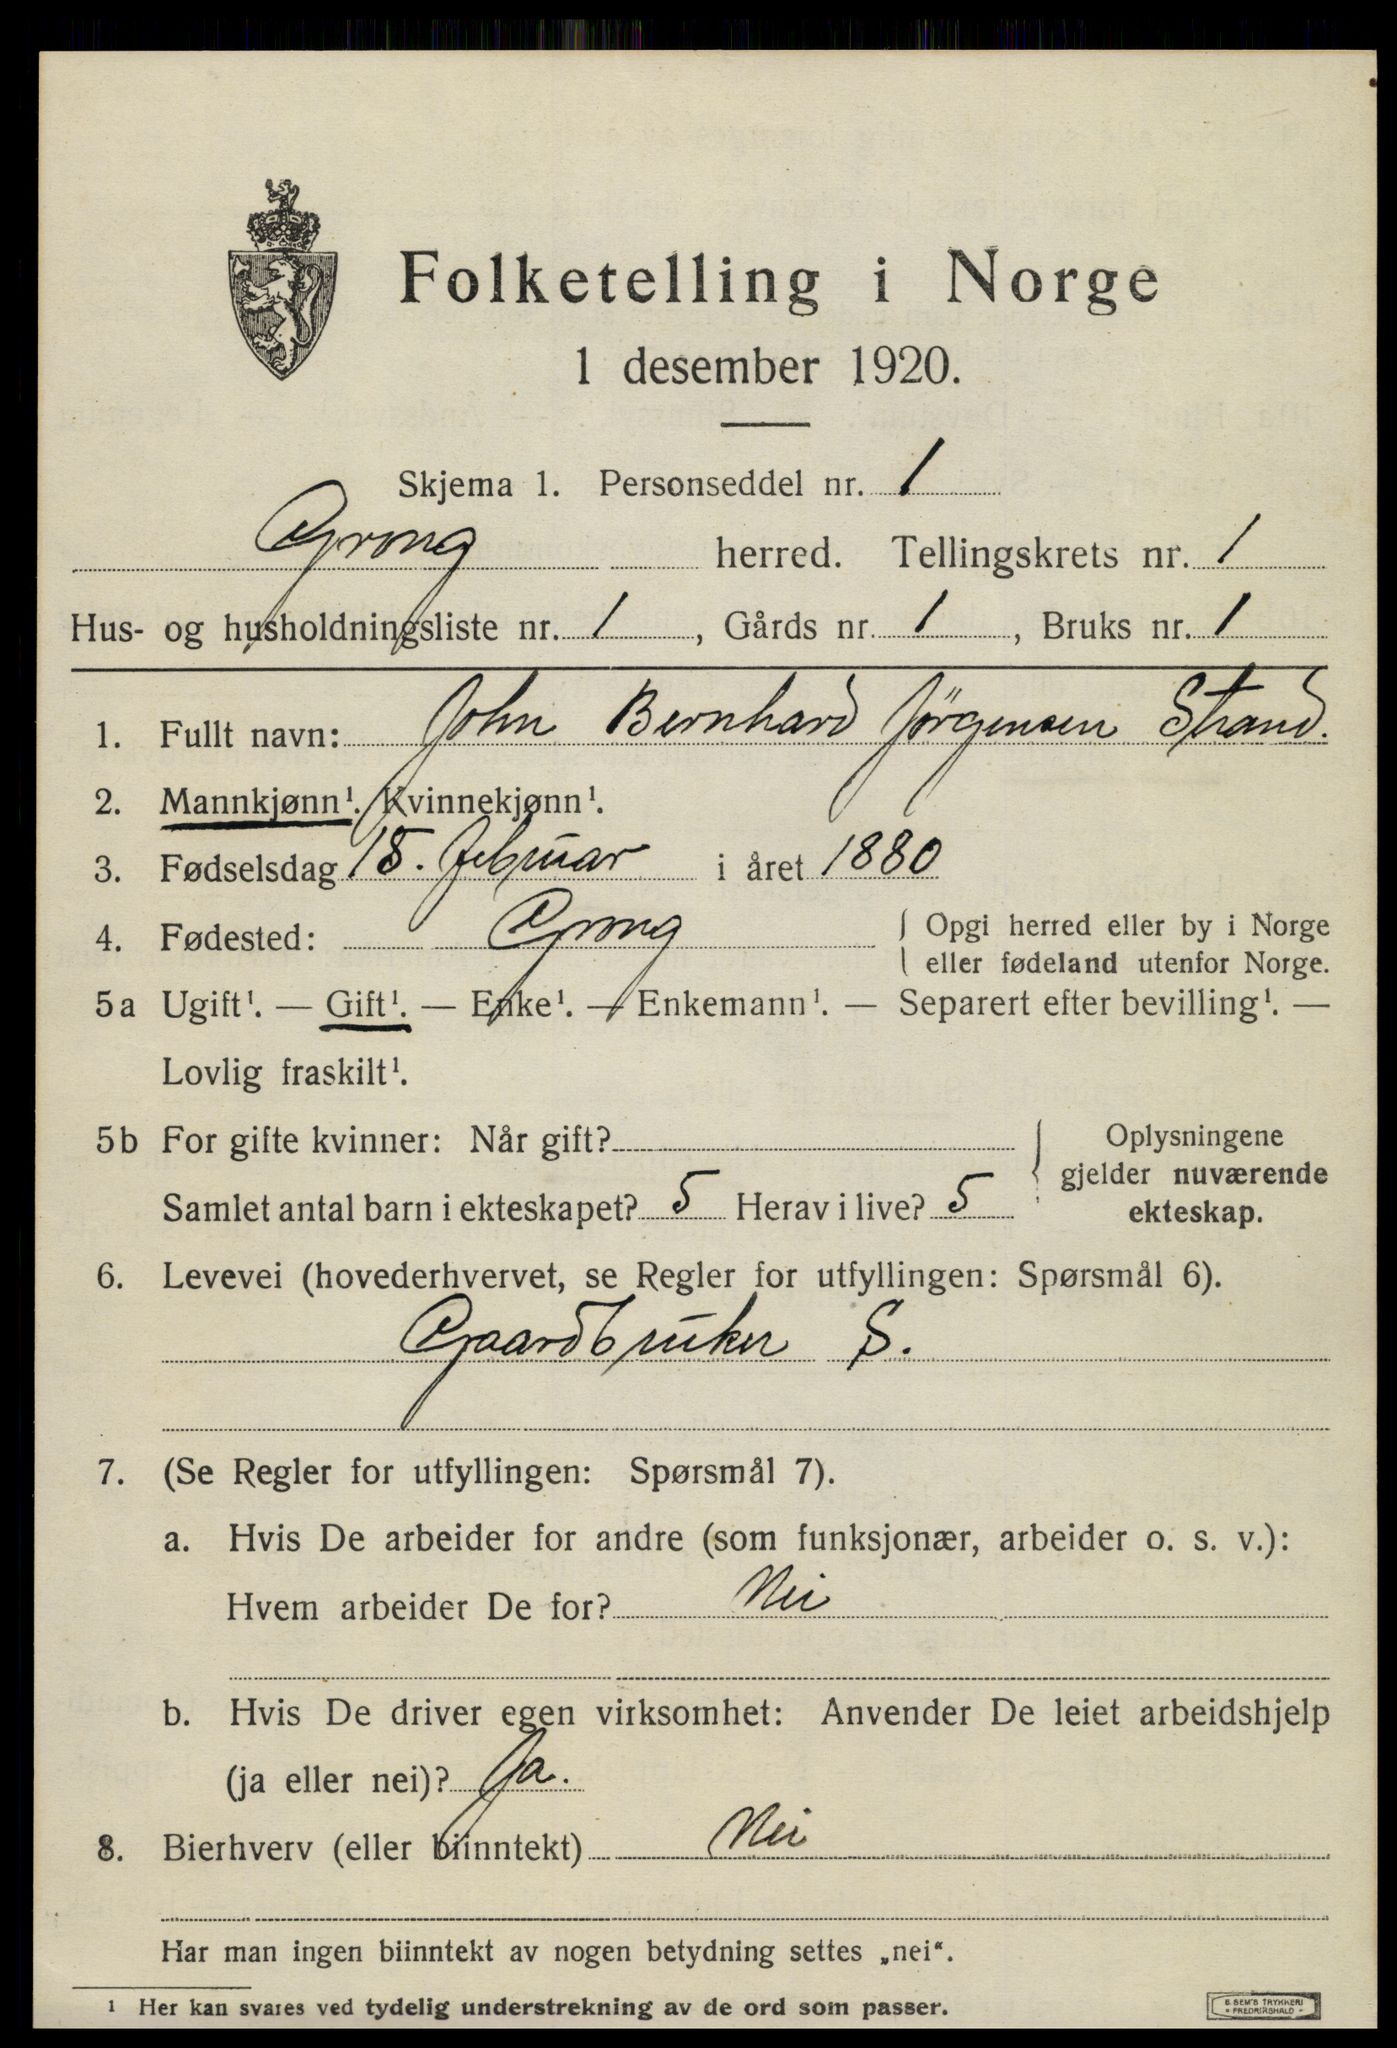 Folketelling i Norge
1 desember 1920.
Skjema 1. Personseddel nr. 1
Grong herred. Tellingskrets nr. 1
Hus- og husholdningsliste nr. 1, Gårds nr. 1, Bruks nr. 1
1. Fullt navn: John Bernhard Jörgensen Strand.
2. Mannkjønn¹. Kvinnekjønn¹.
3. Fødselsdag 18. februar i året 1880
4. Fødested: Grong { Opgi herred eller by i Norge
eller fødeland utenfor Norge.
5a Ugift¹. — Gift¹. — Enke¹. — Enkemann¹. — Separert efter bevilling¹. —
Lovlig fraskilt¹.
5b For gifte kvinner: Når gift? { Oplysningene
gjelder nuværende
Samlet antal barn i ekteskapet? 5 Herav i live? 5 ekteskap.
6. Levevei (hovederhvervet, se Regler for utfyllingen: Spørsmål 6).
Gaardbruker S.
7. (Se Regler for utfyllingen: Spørsmål 7).
a. Hvis De arbeider for andre (som funksjonær, arbeider o. s. v.):
Hvem arbeider De for? Nei
b. Hvis De driver egen virksomhet: Anvender De leiet arbeidshjelp
(ja eller nei)? Ja.
8. Bierhverv (eller biinntekt) Nei
Har man ingen biinntekt av nogen betydning settes „nei“.
¹ Her kan svares ved tydelig understrekning av de ord som passer.
E. SEM'S TRYKKERI
• FREDRIKSHALD •